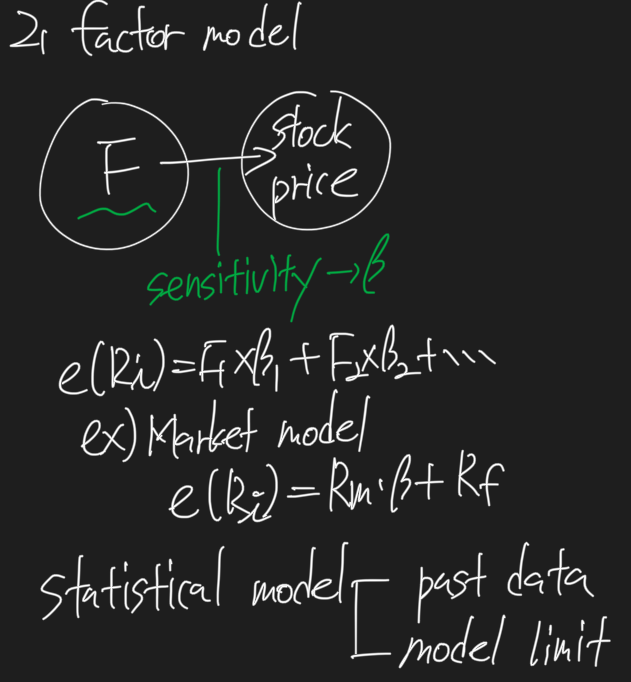 2, factor model
F
stock
price
sensitivity → β
e(Ri) = F₁ × β₁ + F₂ × β₂ + ...
ex) Market model
e(Ri) = Rm · β + Rf
statistical model
past data
model limit